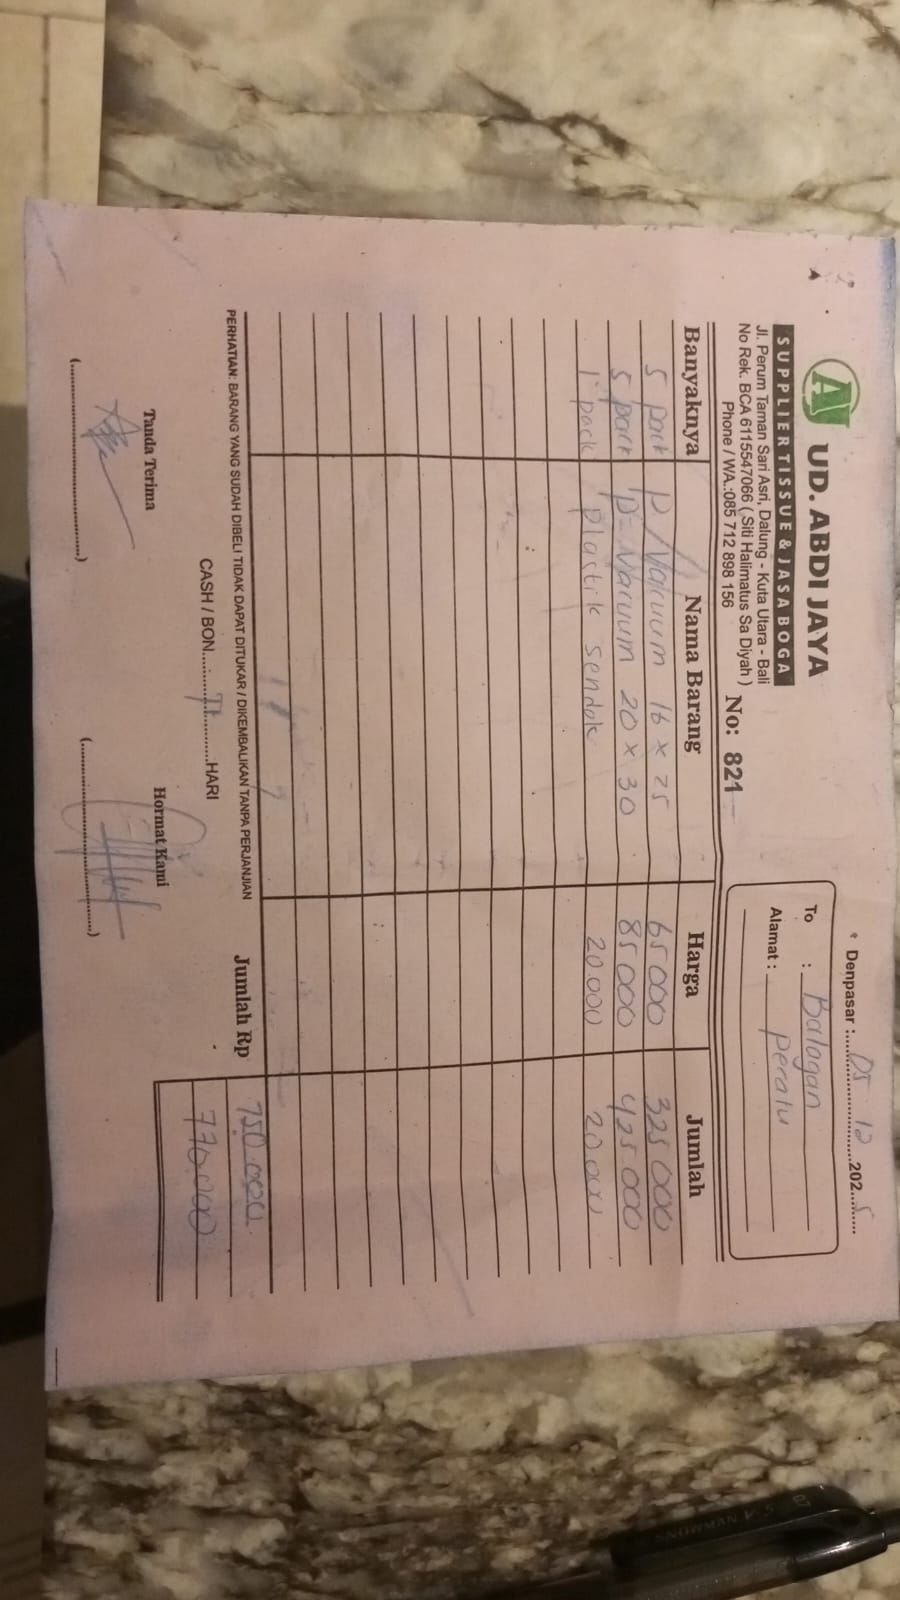 AJ UD. ABDI JAYA
SUPPLIER TISSUE & JASA BOGA
Jl. Perum Taman Sari Asri, Dalung - Kuta Utara - Bali
No Rek. BCA 6115547066 ( Siti Halimatus Sa Diyah )
Phone / WA.:085 712 898 156
No: 821
Denpasar : 05 12 2025
To : Balagan
Alamat : Peratu
Banyaknya Nama Barang Harga Jumlah
5 pack P/Vacuum 16 x 25 65 000 325 000
5 pack P-Vacuum 20 x 30 85 000 425 000
1 pack Plastik sendok 20.000 20.000
Jumlah Rp 750.000
770.000
PERHATIAN: BARANG YANG SUDAH DIBELI TIDAK DAPAT DITUKAR / DIKEMBALIKAN TANPA PERJANJIAN
CASH / BON.............HARI
Tanda Terima Hormat Kami
(........................) (........................)
SNOWMAN V-5